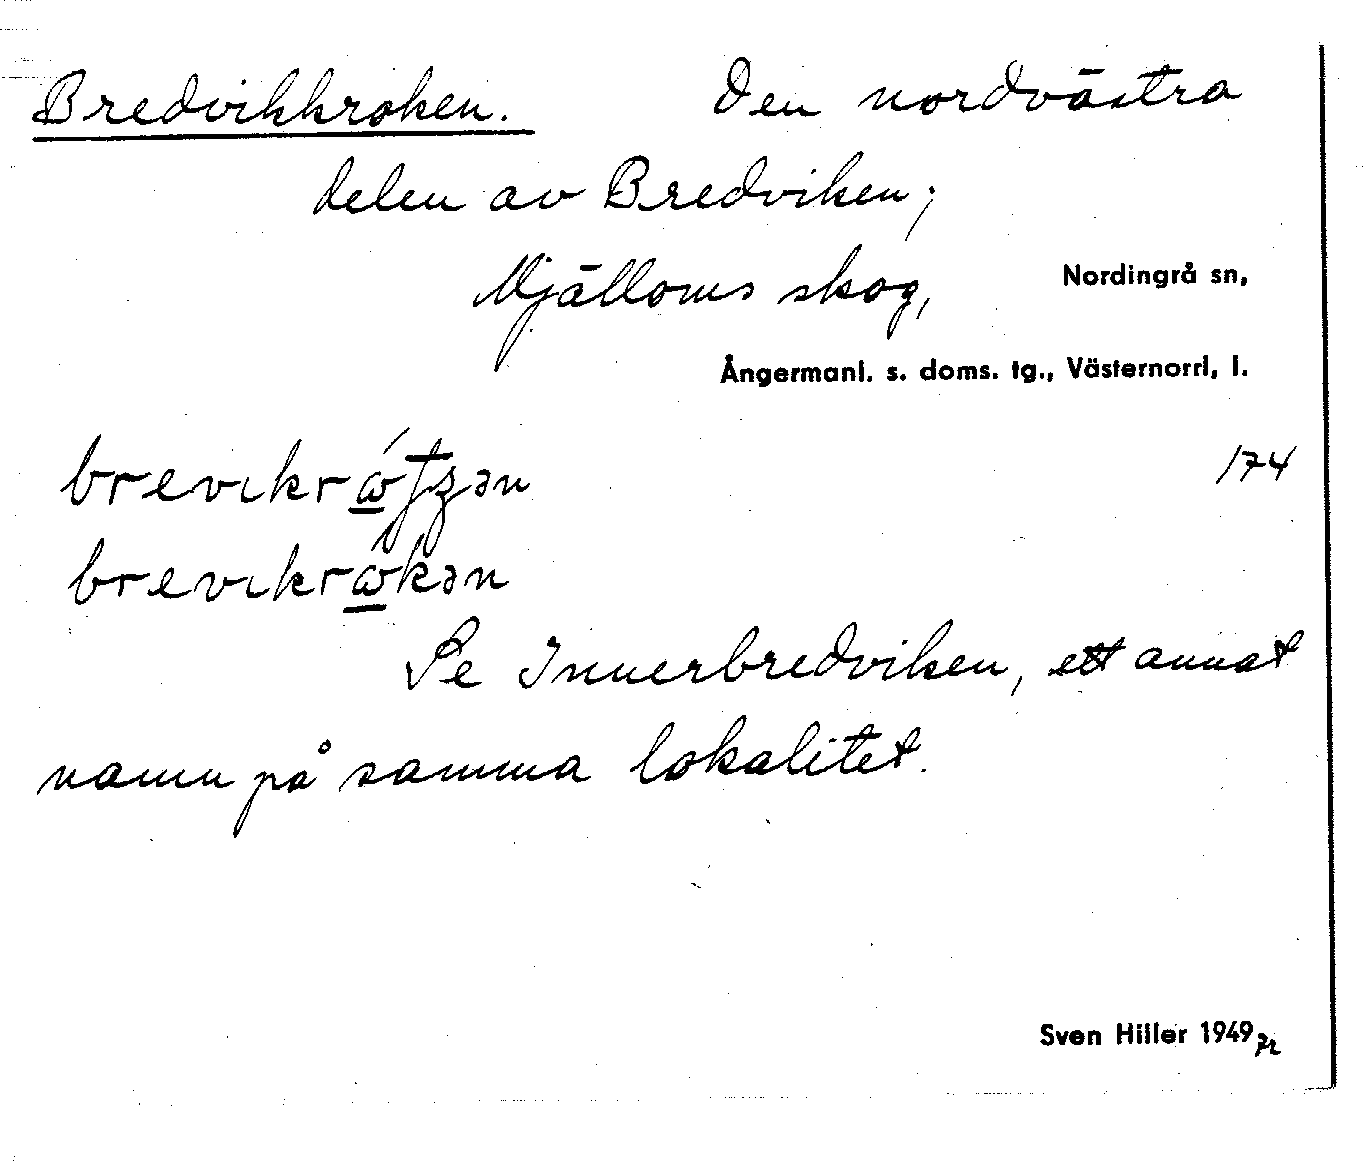 Bredvikkroken. Den nordvästra
delen av Bredviken;
Mjälloms skog, Nordingrå sn,
Ångermanl. s. doms. tg., Västernorrl, l.
174
brevıkrɷ́kən
Se Innerbredviken, ett annat
namn på samma lokalitet.
Sven Hiller 1949